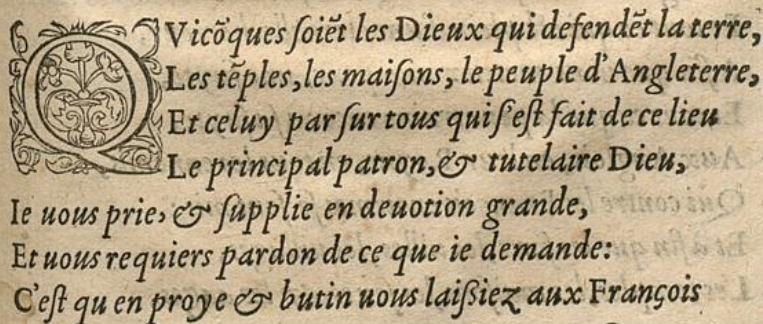 QVicõques ſoiẽt les Dieux qui defendẽt la terre,
Les tẽples, les maiſons, le peuple d'Angleterre,
Et celuy par ſur tous qui ſ'eſt fait de ce lieu
Le principal patron, & tutelaire Dieu,
Ie uous prie, & ſupplie en deuotion grande,
Et uous requiers pardon de ce que ie demande:
C'eſt qu en proye & butin uous laiſsiez aux François